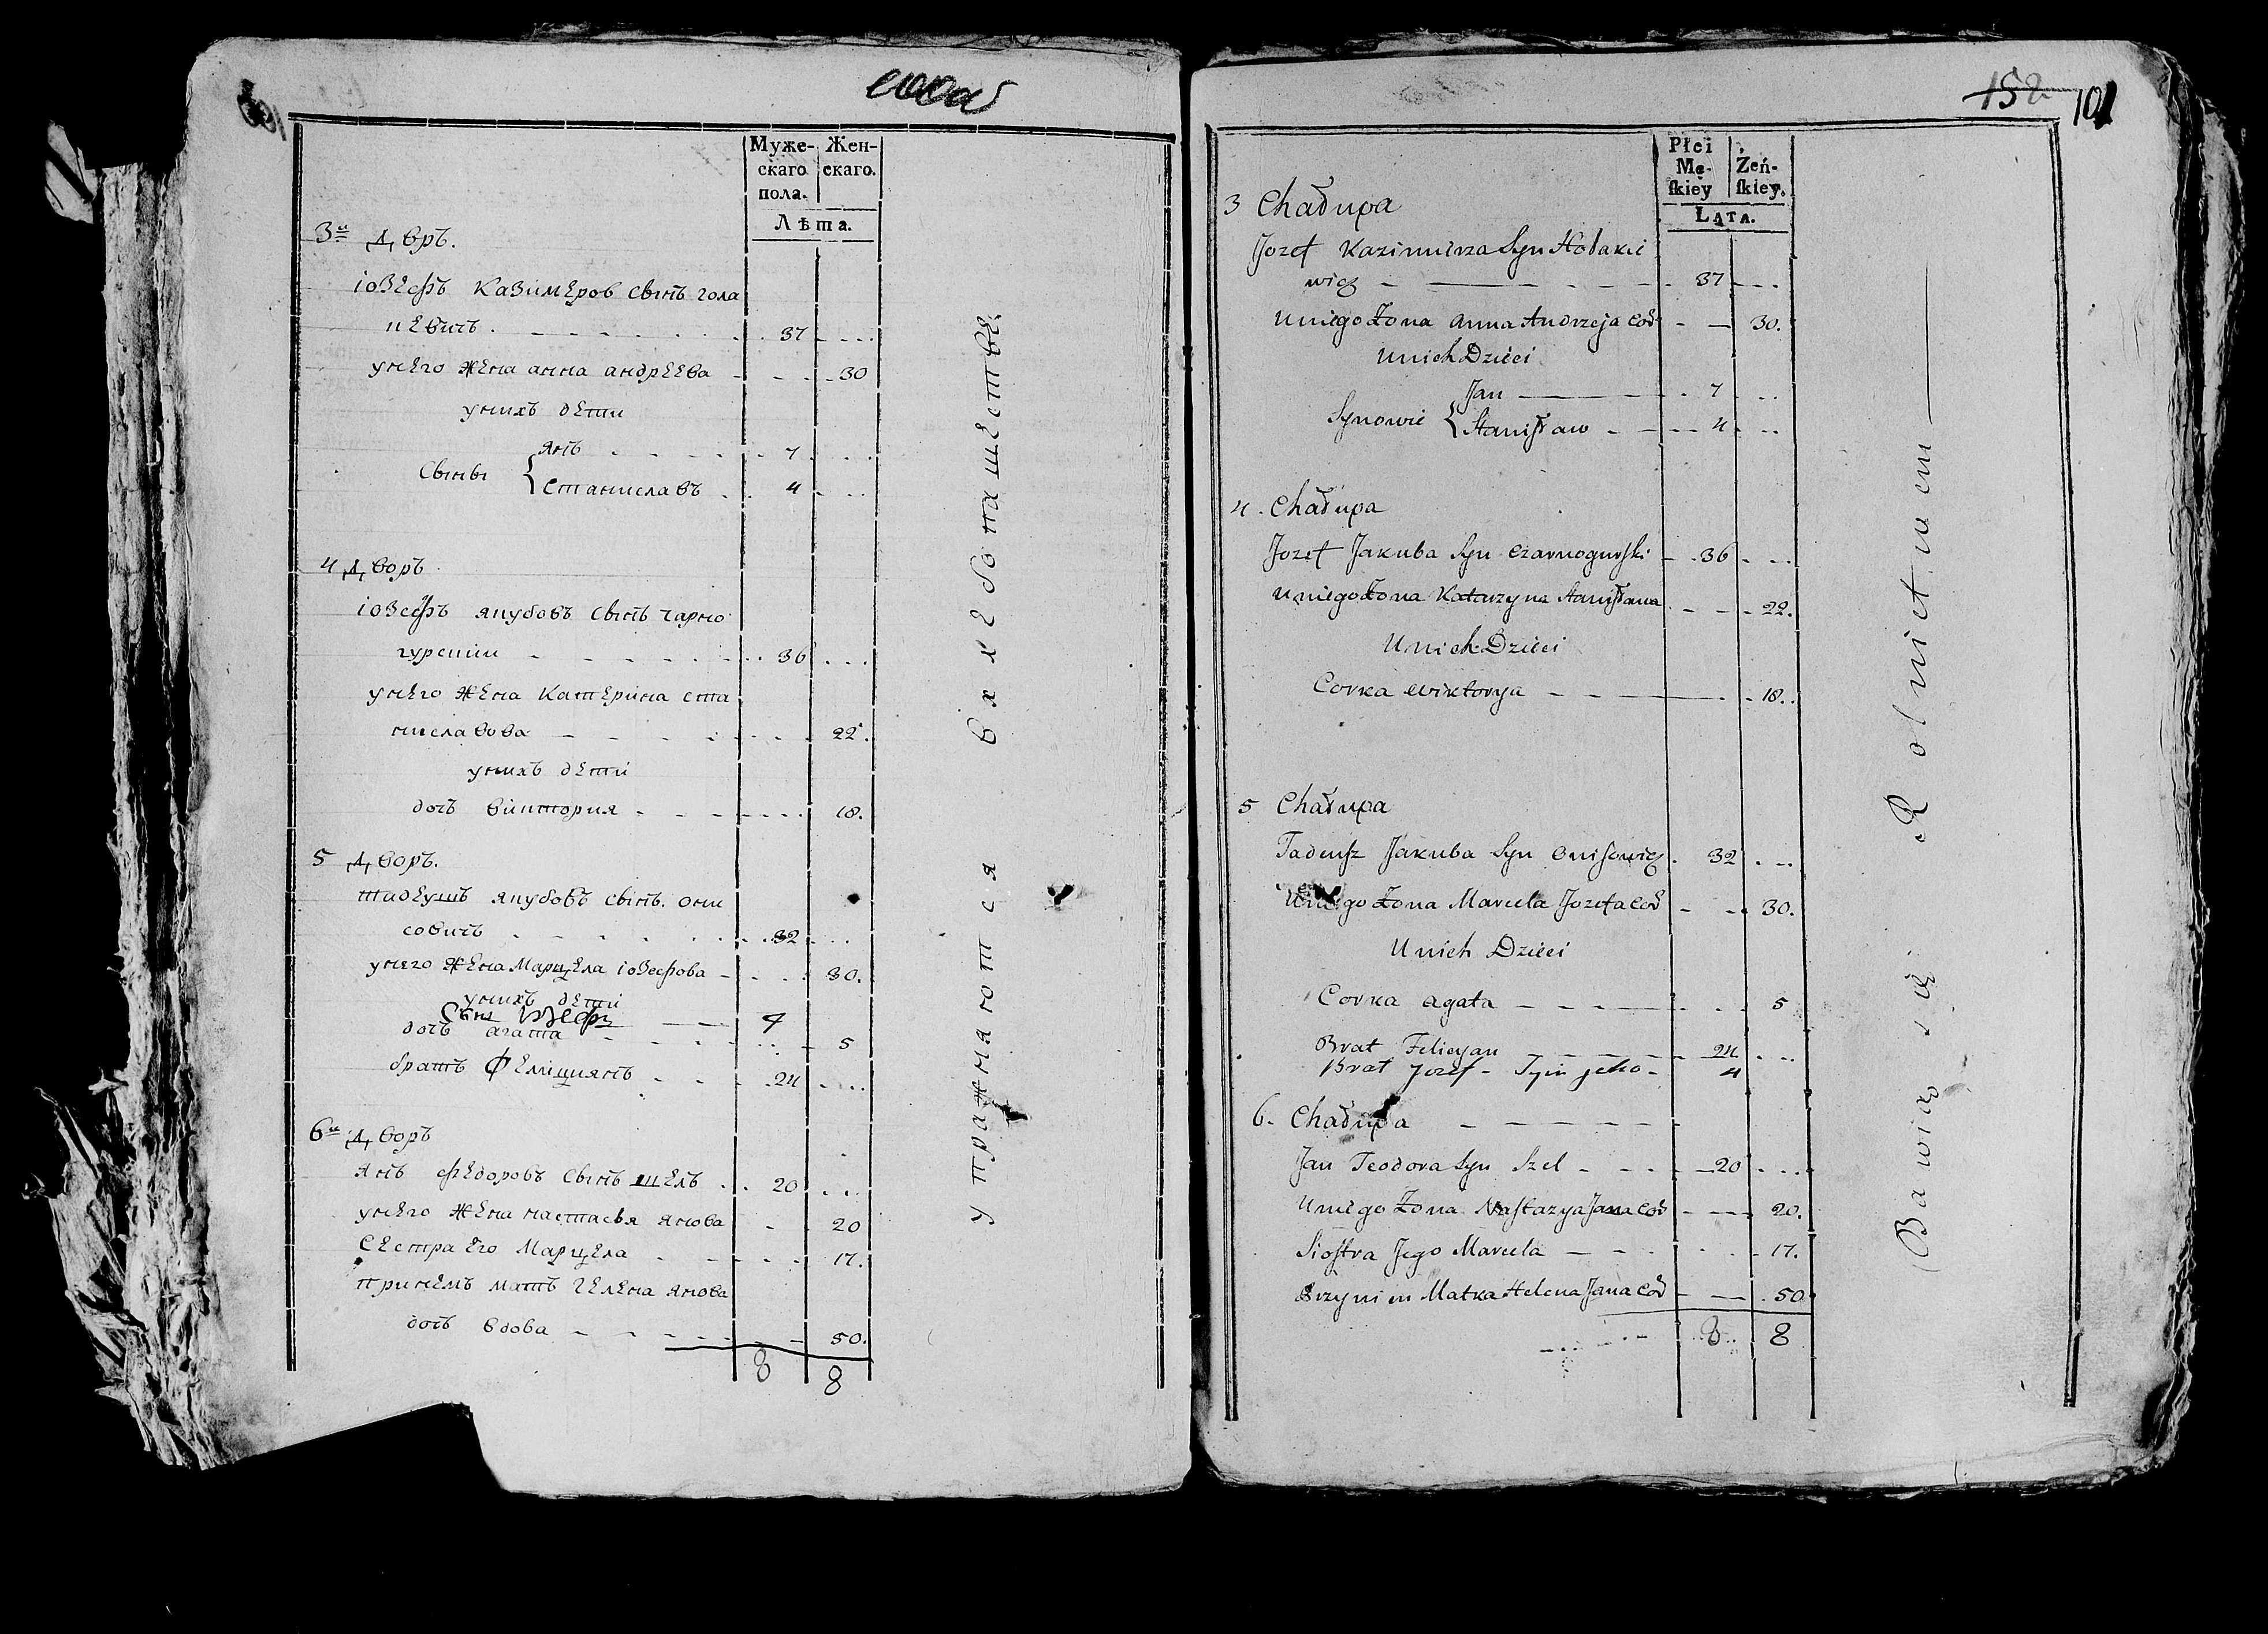 Муже-
скаго
пола.
Жен-
скаго.
Лѣта.
3й Двръ.
іозефъ казимеров сынъ гола
кевичъ. 37
унего жена анна андреева 30
унихъ дети
Сыны { янъ 7
станиславъ 4
4 Дворъ
іозефъ якубовъ сынъ чарно
гурскии 36
унего жена катерина ста
ниславова 22.
унихъ дети
дочъ виктория 18.
5 Дворъ.
тадеушъ якубовъ сынъ. они
совичъ 32
унего жена Марцела іозефова 30.
унихъ дети
Сынъ Іозефъ 4
дочъ агата 5
братъ Фелициянъ 24
6й Дворъ
янъ федоровъ сынъ шелъ 20
унего жена настасья янова 20
сестра его Марцела 17.
принемъ матъ гелена янова
дочъ вдова 50.
8 8
упражняются вхлебопашестве.
152 101
Płci
Mę-
ſkiey
Żeń-
ſkiey.
LATA.
3 Chałupa
Jozef Kazimierza Syn Hołakie
wicz 37
Uniego Żona Anna Andrzeja Cor 30.
Unich Dzieci
Synowie { Jan 7
Staniſław 4
4. Chałupa
Jozef Jakuba Syn Czarnogurſki 36
Uniego Żona Katarzyna Staniſława 22.
Unich Dzieci
Corka Wiktorya 18.
5 Chałupa
Tadeuſz Jakuba Syn Oniſowicz 32
Uniego Żona Marcela Jozefa Cor 30.
Unich Dzieci
Corka Agata 5
Brat Felicyan 24
Brat Jozef - Syn jeho 4
6. Chałupa
Jan Teodora Syn Szel 20
Uniego Żona Naſtazya Jana Cor 20.
Sioſtra Jego Marcela 17.
Przynim Matka Helena Jana Cor 50
8 8
Bawią się Rolnictwem